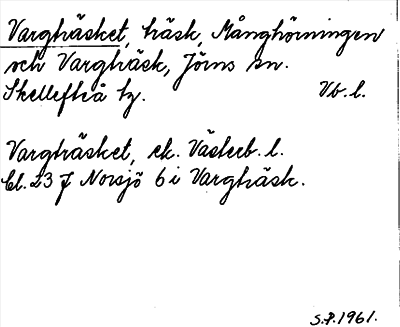 Vargträsket, träsk, Månghörningen
och Vargträsk, Jörns sn.
Skellefteå tg. Vb. l.
Vargträsket, ek. Västerb. l.
Bl. 23 J Norsjö 6 i Vargträsk.
S.P. 1961.